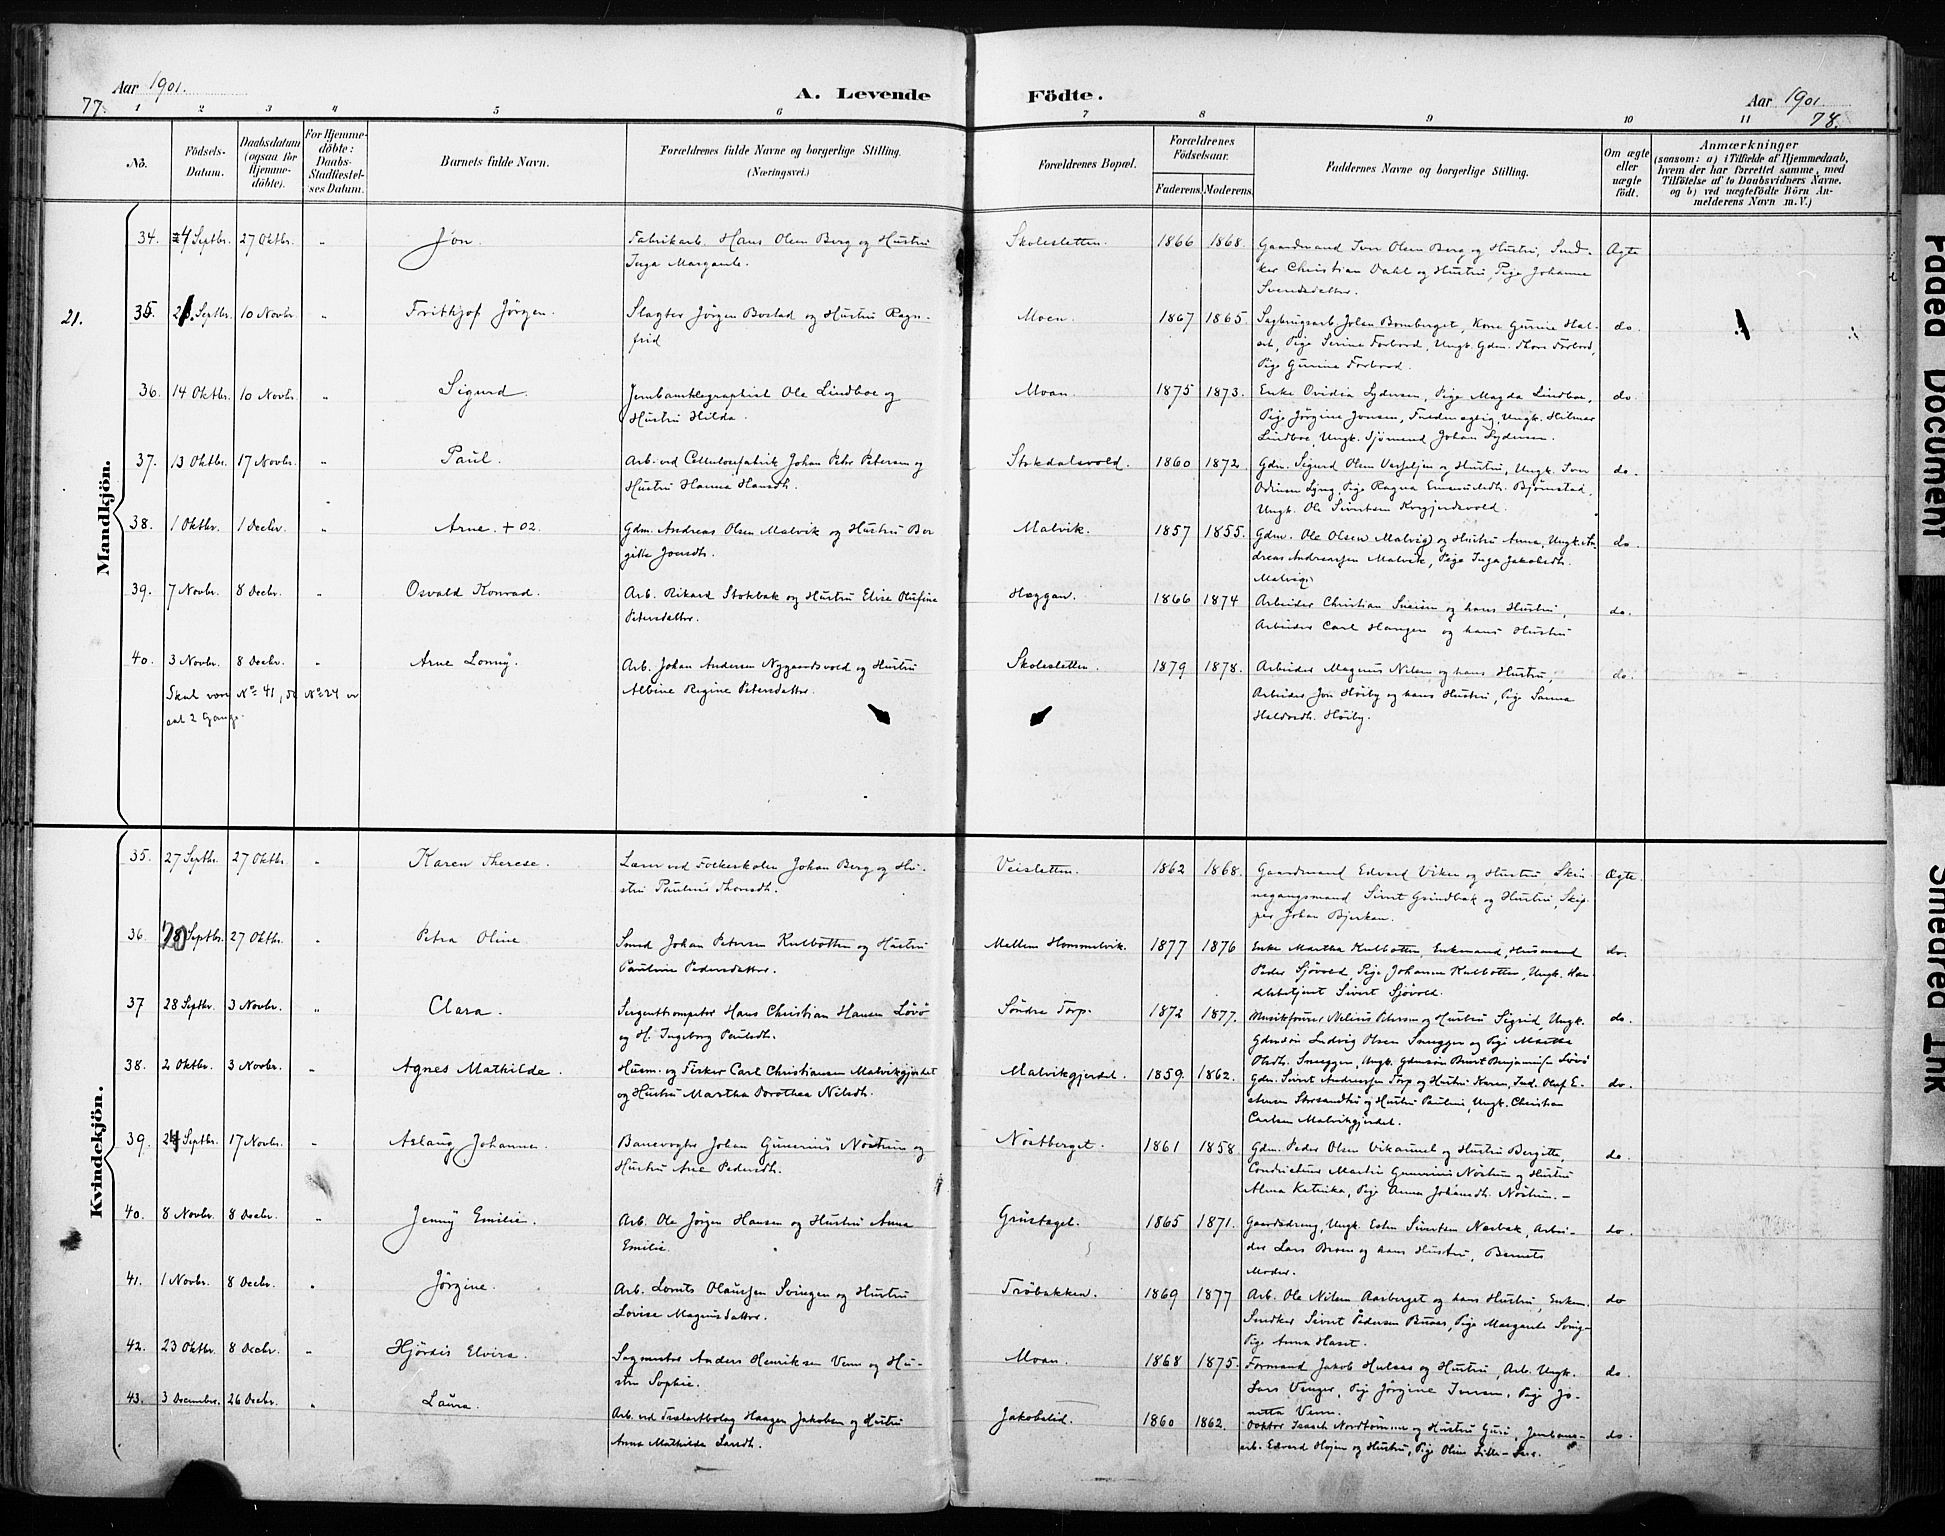 77. Aar 1901.
A. Levende Födte.
Aar 1901. 78.
1 2 3 4 5 6 7 8 9 10 11
No.
Födsels-Datum.
Daabsdatum (ogsaa for Hjemme-döbte).
For Hjemme-döbte: Daabs-Stadfæstel-ses Datum.
Barnets fulde Navn.
Forældrenes fulde Navne og borgerlige Stilling. (Næringsvei.)
Forældrenes Bopæl.
Forældrenes Födselsaar.
Faderens. Moderens.
Faddernes Navne og borgerlige Stilling.
Om ægte eller uægte födt.
Anmærkninger
(saasom: a) i Tilfælde af Hjemmedaab, hvem der har forrettet samme, med Tilföielse af to Daabsvidners Navne, og b) ved uægtefödte Börn An-melderens Navn m. V.)
Mandkjön.
34. 4 Septbr. 27 Oktbr. " Jon. Fabrikarb. Hans Olsen Berg og Hustru Skolesletten. 1866 1868. Gaardmand Iver Olsen Berg og Hustru, Sned- Ægte
Inga Margrete. ker Christian Dahl og Hustru, Pige Johanne
Svendsdatter.
21. 35. Septbr. 10 Novbr. " Frithjof Jörgen. Slagter Jörgen Bostad og Hustru Ragn- Moen. 1867 1865. Sagbrugsarb. Johan Bomberget, Kone Gurine Hal- do.
frid Pige Serine Forbord, Ungk. Gdm. Thore Forbord,
Pige Gurine Forbord.
36. 14 Oktbr. 10 Novbr. " Sigurd. Jernbanetelegraphist Ole Lindboe og Moan. 1875 1873. Enke Ovidia Lydersen, Pige Magda Lindboe, do.
Hustru Hilda. Pige Jörgine Jensen, Ungk. Hilmar
Lindboe, Ungk. Sjömand Johan Lydersen.
37. 13 Oktbr. 17 Novbr. " Paul. Arb. ved Cellulosefabrik Johan Peter Petersen og Stokdalsvold. 1860 1872. Gdm. Sigurd Olsen og Hustru, Ungk. Iver do.
Hustru Hanna Hansdh. Odinsen Ljug, Pige Ragna Bjørnstad,
Ungk. Ole Sivertsen
38. 1 Oktbr. 1 Decbr. " Arne. + 02. Gdm. Andreas Olsen Malvik og Hustru Ber- Malvik. 1857 1855. Gdm. Ole Olsen Malvig og Hustru Anna, Ungk. An- do.
gitte Joensdh. dreas Andreassen Malvik, Pige Inga Jakobsdh.
Malvig.
39. 7 Novbr. 8 Decbr. " Osvald Konrad. Arb. Rikard Stokbak og Hustru Elise Olufine Hæggan. 1866 1874 Arbeider Christian og hans Hustru, do.
Petersdatter. Arbeider Carl Haugen og hans Hustru
40. 3 Novbr. 8 Decbr. " Arne Lonny. Arb. Johan Andersen Nygaardsvold og Hustru Skolesletten. 1879 1878. Arbeider Magnus Nilsen og hans Hustru, do.
Albine Regine Petersdatter. Arbeider Jon Höiby og hans Hustru, Pige Sanna
Haldorsdh. Höiby.
Skal være No. 41, No. 24 er
sat 2 Gange.
Kvindekjön.
35. 27 Septbr. 27 Oktbr. " Karen Therese. Lærer ved Folkeskolen Johan Berg og Hu- Veisletten. 1862 1868. Gaardmand Edvard Viken og Hustru, Skin- Ægte.
stru Pauline Thomsdh. negangsmand Sivert Grindbak og Hustru, Skip-
per Johan Bjerkan.
36. Septbr. 27 Oktbr. " Petra Oline. Smed Johan Petersen Kulbotten og Hustru Mellem Hommelvik. 1877 1876 Enke Martha Kulbotten, Enkemand, Husmand do.
Pauline Pedersdatter. Peder Sjövold, Pige Johanne Kulbotten, Ungk. Han-
delsbetjent Sivert Sjövold.
37 28 Septbr. 3 Novbr. " Clara. Sergenttrompeter Hans Christian Hansen Lövö Söndre Torp. 1872 1877. Musikfourer Nelius Petersen og Hustru Sigrid, Ungk. do.
og H. Ingeborg Paulsdh. Gdmsön Ludvig Olsen Smeggen og Pige Marethe
Olsdh. Smeggen, Ungk. Gdmsön Bernt Benjaminsen Lövö
38. 2 Oktbr. 3 Novbr. " Agnes Mathilde. Husm. og Fisker Carl Christiansen Malvikgjerdet Malvikgjerdet. 1859 1862. Gdm. Sivert Andreassen Torp og Hustru Karen, Ind. Oluf E- do.
og Hustru Martha Dorothea Nilsdh. og Hustru Pauline, Ungk. Christian
Carlsen Malvikgjerdet.
39. 24 Septbr. 17 Novbr. " Aslaug Johanne. Banevogter Johan Gunerius Nöstrum og Nöstberget. 1861 1858 Gdm. Peder Olsen Vikaunet og Hustru Bergitte, do.
Hustru Ane Pedersdh. Conducteur Martin Gunerius Nöstrum og Hustru
Alma Katrika, Pige Anna Johansdh. Nöstrum. -
40. 8 Novbr. 8 Decbr. " Jenny Emilie. Arb. Ole Jörgen Hansen og Hustru Anna Grustaget. 1865 1871. Gaardsdreng, Ungk. Esten Sivertsen Næsbak, Arbei- do
Emilie. der Lars Broen og hans Hustru, Barnets
Moder.
41. 1 Novbr. 8 Decbr. " Jörgine. Arb. Lorents Olaussen Svingen og Hustru Tröbakken. 1869 1877 Arb. Ole Nilsen Aasberget og hans Hustru, Enkem. do
Lovise Magnusdatter. Snedker Sivert Pedersen Buaas, Pige Margrete Sving-
Pige Anna Haset.
42. 23 Oktbr. 8 Decbr. " Hjördis Elvira. Sagmester Anders Henriksen Venn og Hu- Moan. 1868 1875. Formand Jakob Hulsas og Hustru, Arb. Ungk. do.
stru Sophie. Lars Venger, Pige Jörgine Jensen, Pige Jo-
netta Venn.
43. 3 December. 26 Decbr. " Laura. Arb. ved Trælastbolag Haagen Jakobsen og Hustru Jakobslid. 1860 1862. Doktor Isaach Nordtömme og Hustru Guru, Jernbane- do.
Anna Mathilde Larsdh. arb. Edvard Hojem og Hustru, Pige Oline Lille-
Faded Document
Smeared Ink